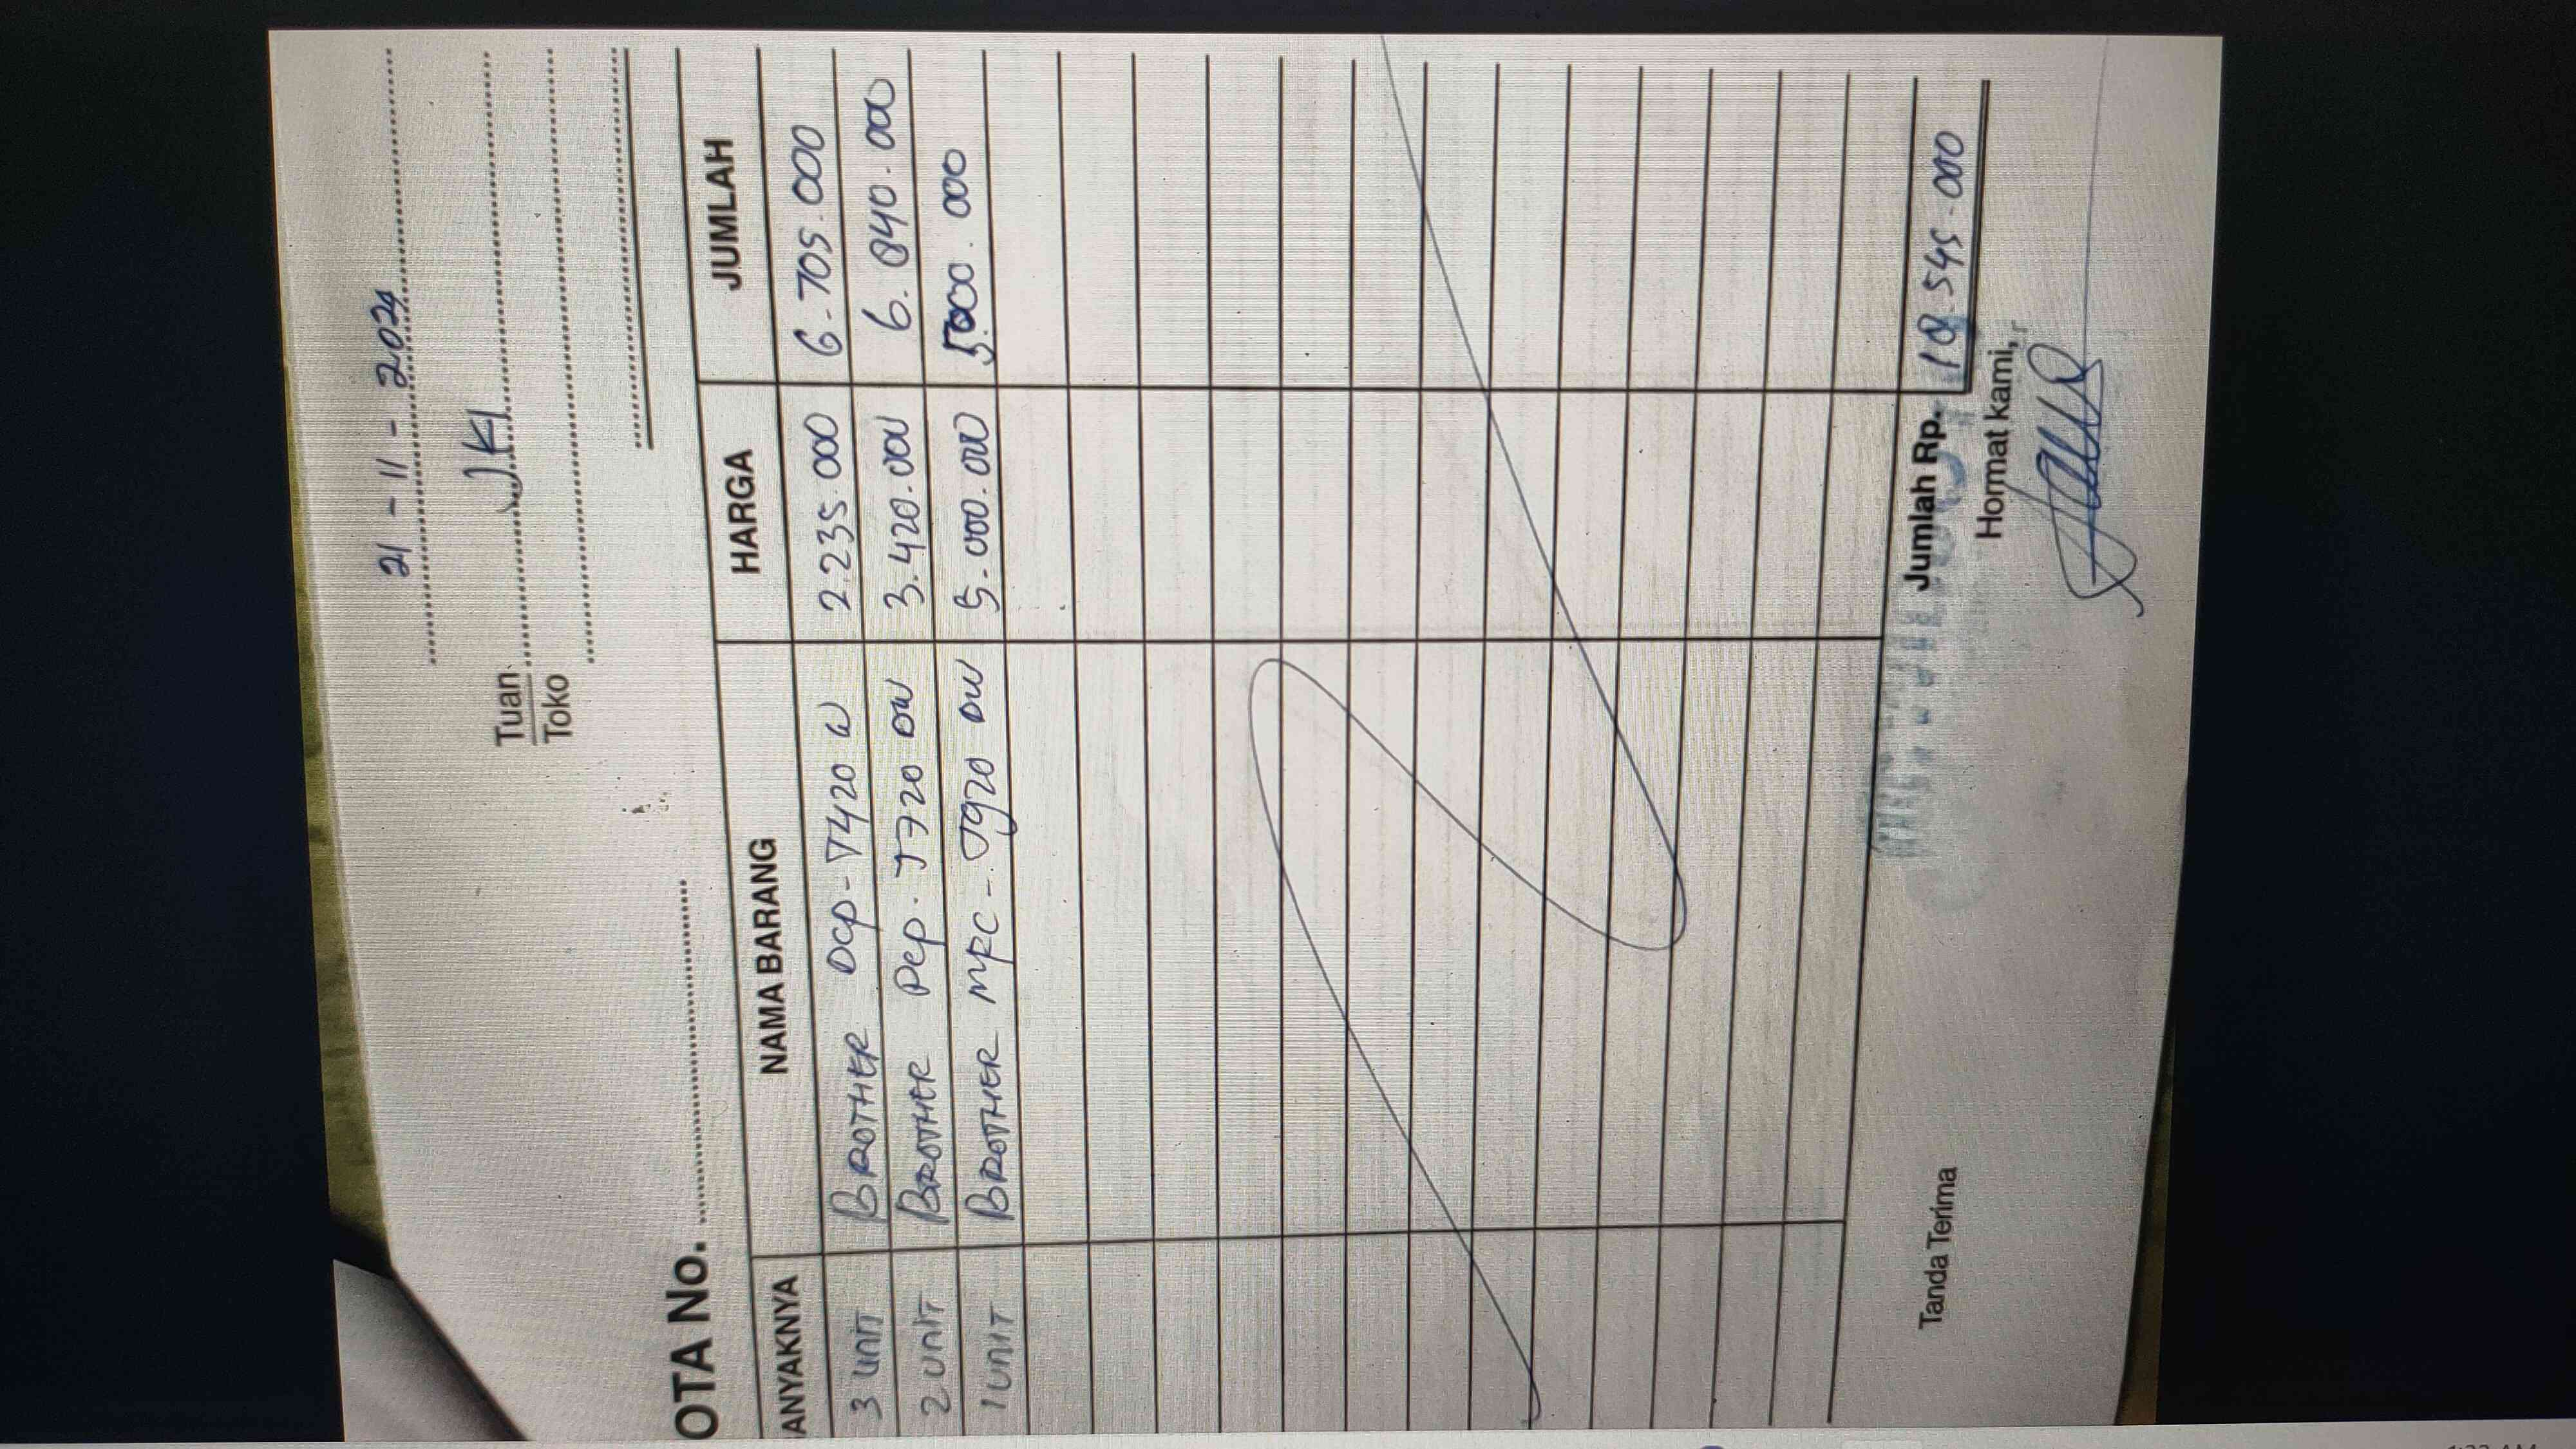 21 - 11 - 2024
Tuan JKI
Toko
OTA No.
ANYAKNYA NAMA BARANG HARGA JUMLAH
3 UNIT BROTHER DCP - T420 W 2.235.000 6.705.000
2 UNIT BROTHER DCP - T720 DW 3.420.000 6.840.000
1 UNIT BROTHER MFC - T920 DW 5.000.000 5000.000
Tanda Terima Jumlah Rp. 18.545.000
Hormat kami,